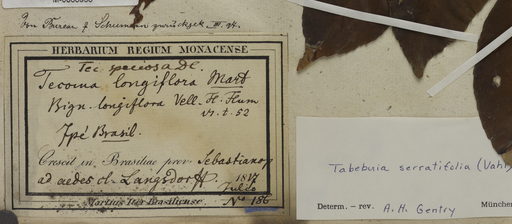 Von Bureau & Schumann zurückgek. III. 94.
HERBARIUM REGIUM MONACENSE
Tec. speciosa DC.
Tecoma longiflora Mart
Bign. longiflora Vell. Fl. Flum
VI. t. 52
Ipé Brasil.
Crescit in Brasiliae prov. Sebastianop
ad aedes cl. Langsdorff. 1817
Julio
Martius Iter Brasiliense. No 186
Tabebuia serratifolia (Vahl)
Determ. – rev. A.H. Gentry
München